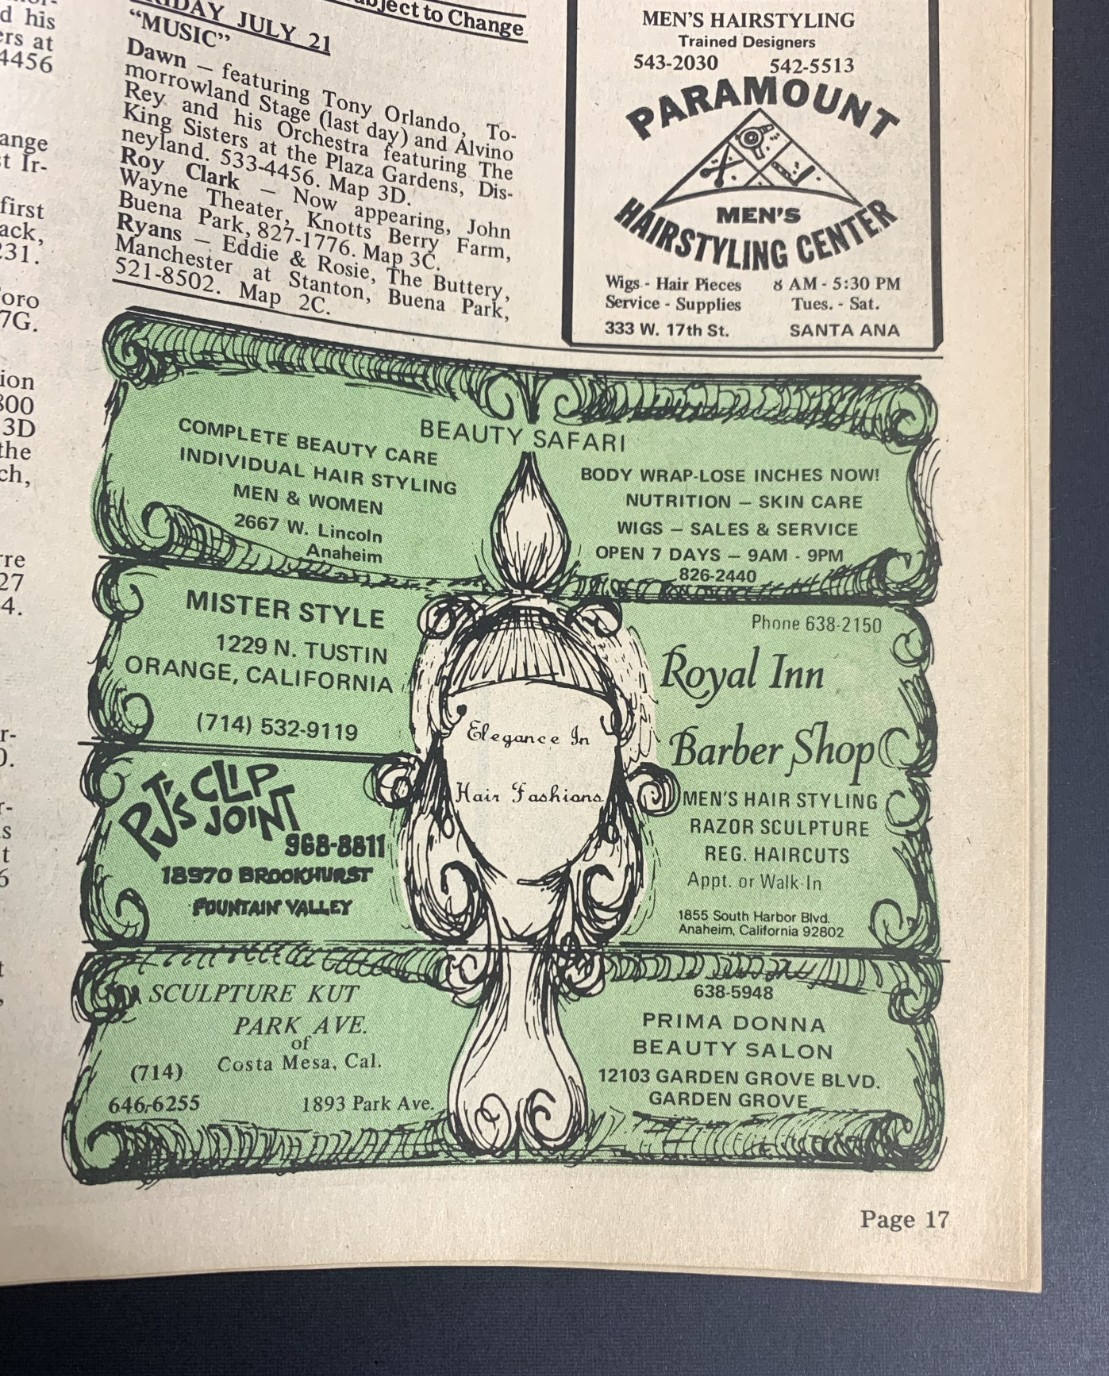 d his
ers at
4456
ange
t Ir-
first
ack,
231.
oro
7G.
ion
800
3D
the
ch,
rre
27
4.
r-
0.
r-
s
t
6
t
,
bject to Change
RIDAY JULY 21
“MUSIC”
Dawn — featuring Tony Orlando, To-
morrowland Stage (last day) and Alvino
Rey and his Orchestra featuring The
King Sisters at the Plaza Gardens, Dis-
neyland. 533-4456. Map 3D.
Roy Clark — Now appearing, John
Wayne Theater, Knotts Berry Farm,
Buena Park, 827-1776. Map 3C.
Ryans — Eddie & Rosie, The Buttery,
Manchester at Stanton, Buena Park,
521-8502. Map 2C.
MEN'S HAIRSTYLING
Trained Designers
543-2030 542-5513
PARAMOUNT
MEN'S
HAIRSTYLING CENTER
Wigs - Hair Pieces 8 AM - 5:30 PM
Service - Supplies Tues. - Sat.
333 W. 17th St. SANTA ANA
BEAUTY SAFARI
COMPLETE BEAUTY CARE
INDIVIDUAL HAIR STYLING
MEN & WOMEN
2667 W. Lincoln
Anaheim
BODY WRAP-LOSE INCHES NOW!
NUTRITION — SKIN CARE
WIGS — SALES & SERVICE
OPEN 7 DAYS — 9AM - 9PM
826-2440
MISTER STYLE
1229 N. TUSTIN
ORANGE, CALIFORNIA
(714) 532-9119
PJ's CLIP
JOINT
968-8811
18970 BROOKHURST
FOUNTAIN VALLEY
Elegance In
Hair Fashions
Phone 638-2150
Royal Inn
Barber Shop
MEN'S HAIR STYLING
RAZOR SCULPTURE
REG. HAIRCUTS
Appt. or Walk-In
1855 South Harbor Blvd.
Anaheim, California 92802
SCULPTURE KUT
PARK AVE.
of
Costa Mesa, Cal.
(714)
646-6255 1893 Park Ave.
638-5948
PRIMA DONNA
BEAUTY SALON
12103 GARDEN GROVE BLVD.
GARDEN GROVE
Page 17